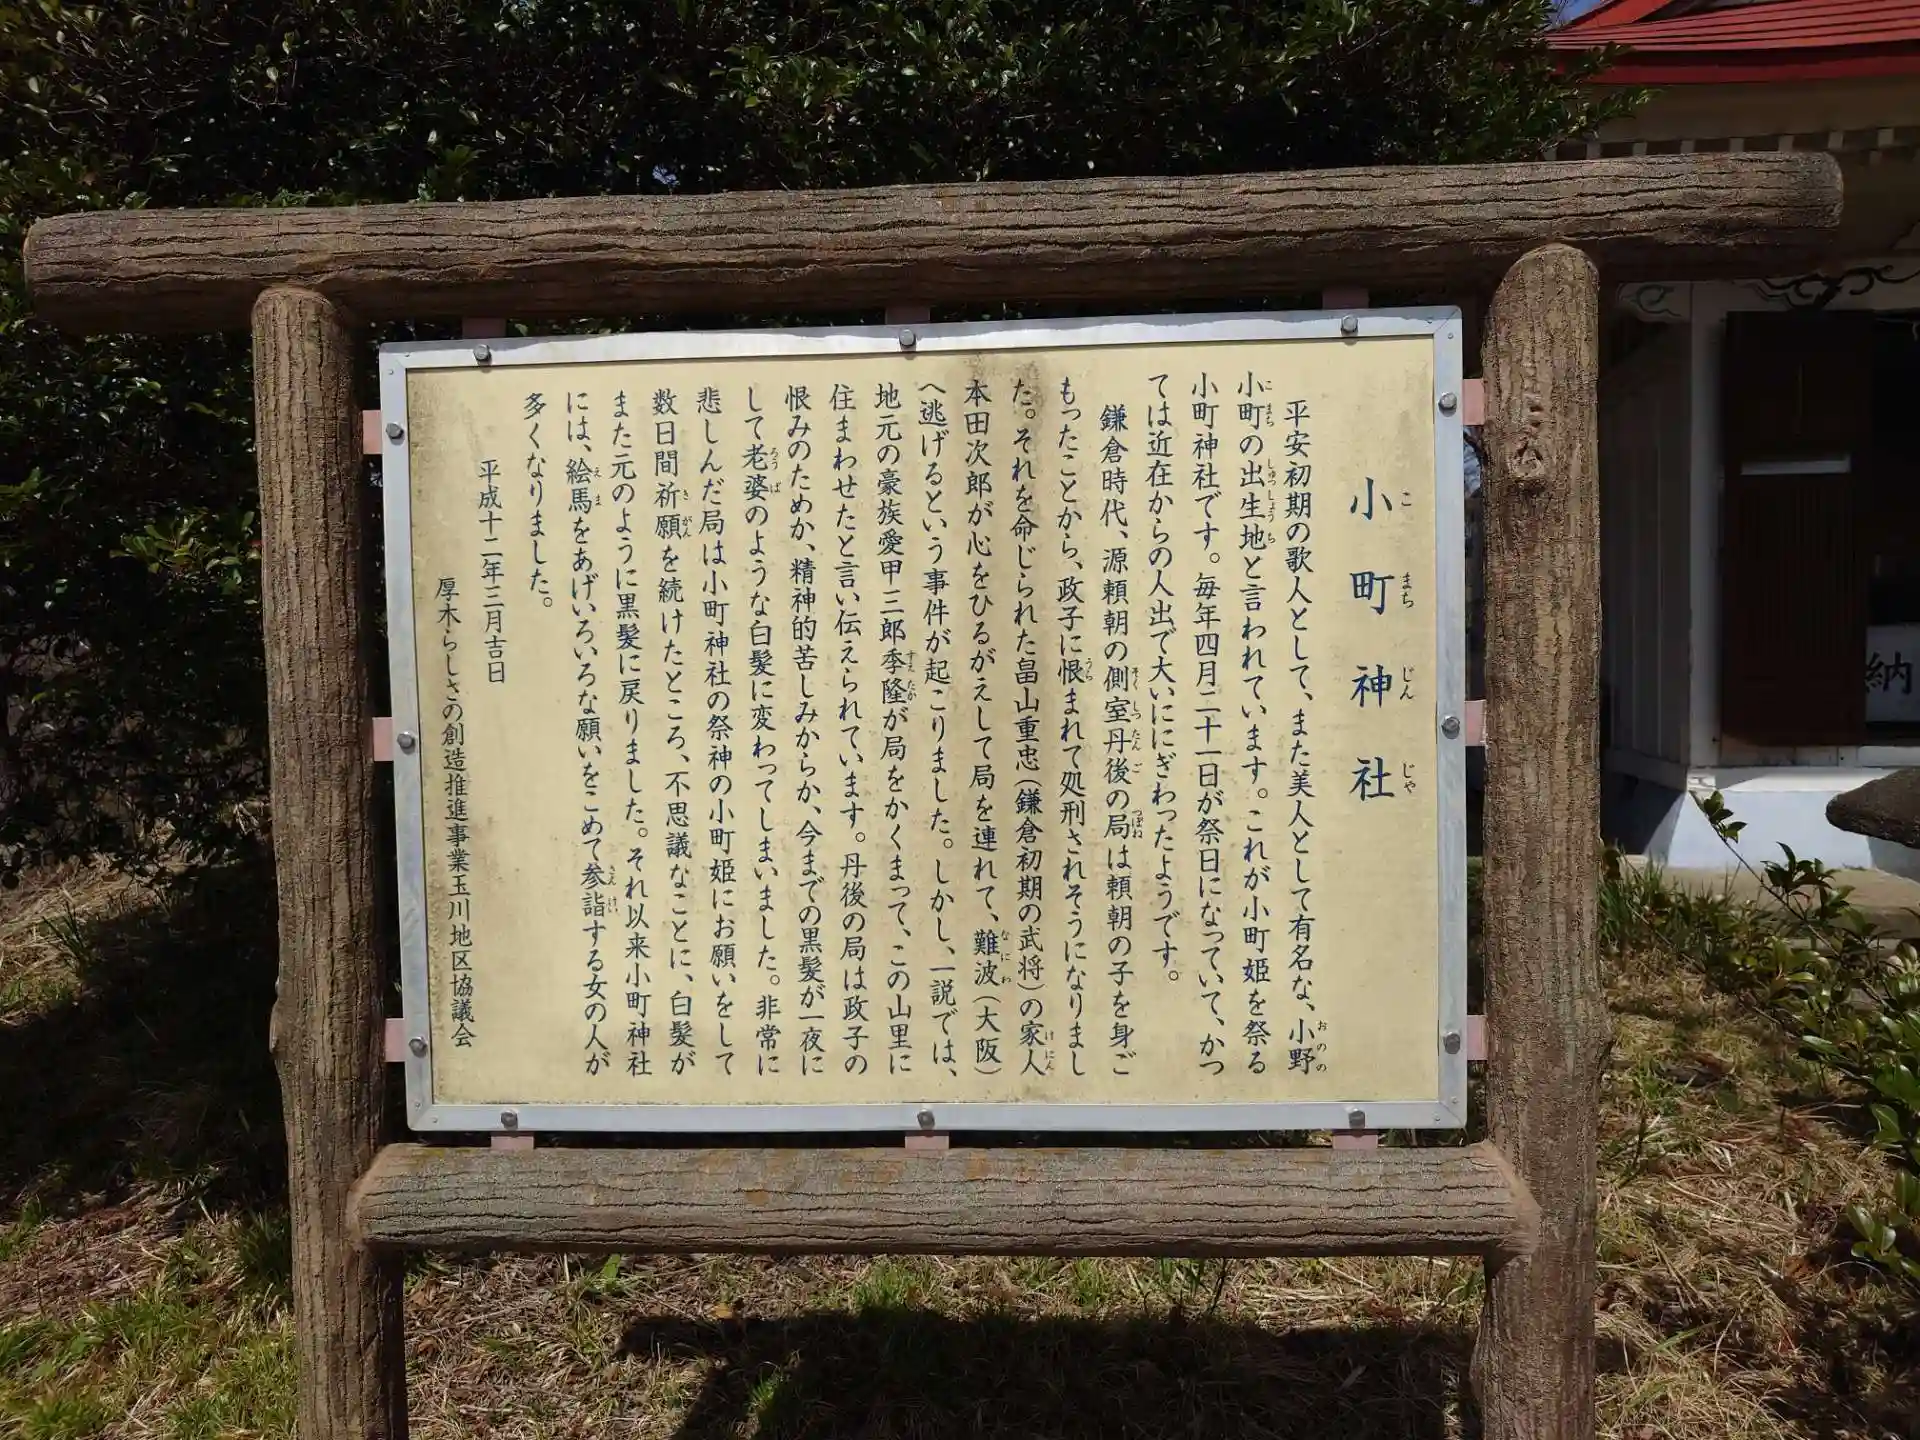 小町神社
平安初期の歌人として、また美人として有名な、小野
小町の出生地と言われています。これが小町姫を祭る
小町神社です。毎年四月二十一日が祭日になっていて、かつ
ては近在からの人出で大いににぎわったようです。
鎌倉時代、源頼朝の側室丹後の局は頼朝の子を身ご
もったことから、政子に恨まれて処刑されそうになりまし
た。それを命じられた畠山重忠(鎌倉初期の武将)の家人
本田次郎が心をひるがえして局を連れて、難波(大阪)
へ逃げるという事件が起こりました。しかし、一説では、
地元の豪族愛甲三郎季隆が局をかくまって、この山里に
住まわせたと言い伝えられています。丹後の局は政子の
恨みのためか、精神的苦しみからか、今までの黒髪が一夜に
して老婆のような白髪に変わってしまいました。非常に
悲しんだ局は小町神社の祭神の小町姫にお願いをして
数日間祈願を続けたところ、不思議なことに、白髪が
また元のように黒髪に戻りました。それ以来小町神社
には、絵馬をあげいろいろな願いをこめて参詣する女の人が
多くなりました。
平成十二年三月吉日
厚木らしさの創造推進事業玉川地区協議会
納